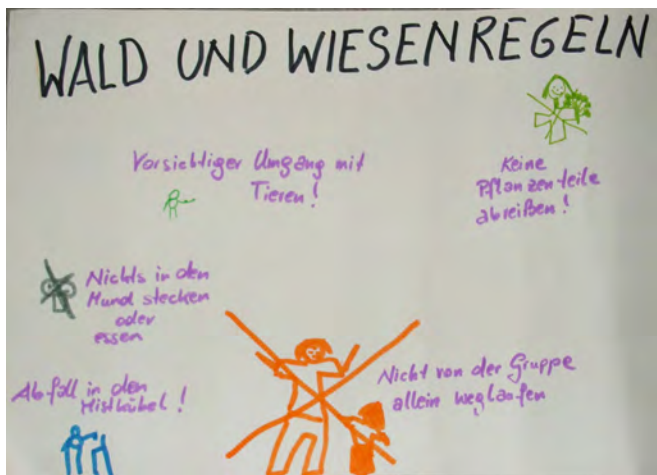 WALD UND WIESENREGELN
Vorsichtiger Umgang mit
Tieren!
Keine
Pflanzenteile
abreißen!
Nichts in den
Mund stecken
oder
essen
Abfall in den
Mistkübel!
Nicht von der Gruppe
allein weglaufen